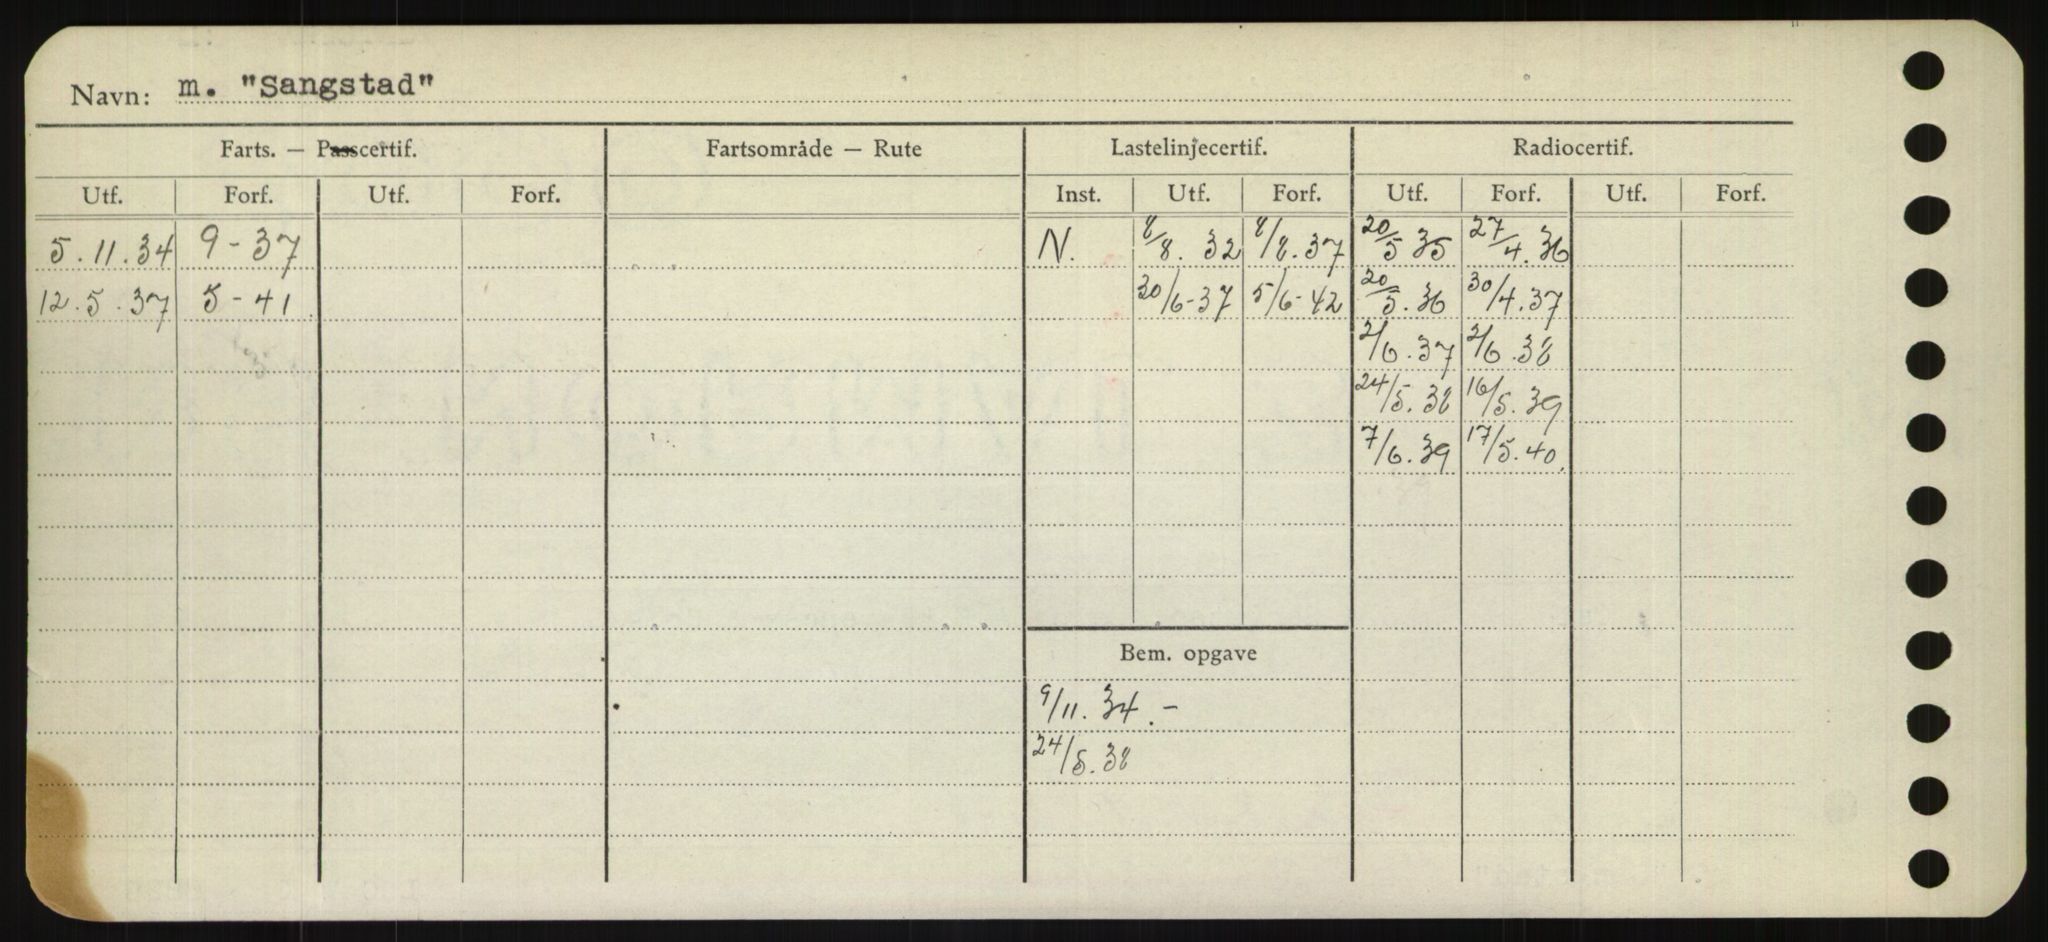 Navn: m. "Sangstad"
Farts. — Passcertif. Fartsområde — Rute Lastelinjecertif. Radiocertif.
Utf. Forf. Utf. Forf. Inst. Utf. Forf. Utf. Forf. Utf. Forf.
5.11.34 9-37 N. 8/8. 32 8/8.37 20/5 35 27/4.36
12.5.37 5-41 30/6-37 5/6-42 20/5.36 30/4.37
2/6.37 2/6.38
24/5.38 16/5.39
7/6.39 17/5.40.
Bem. opgave
9/11.34.-
24/5.38